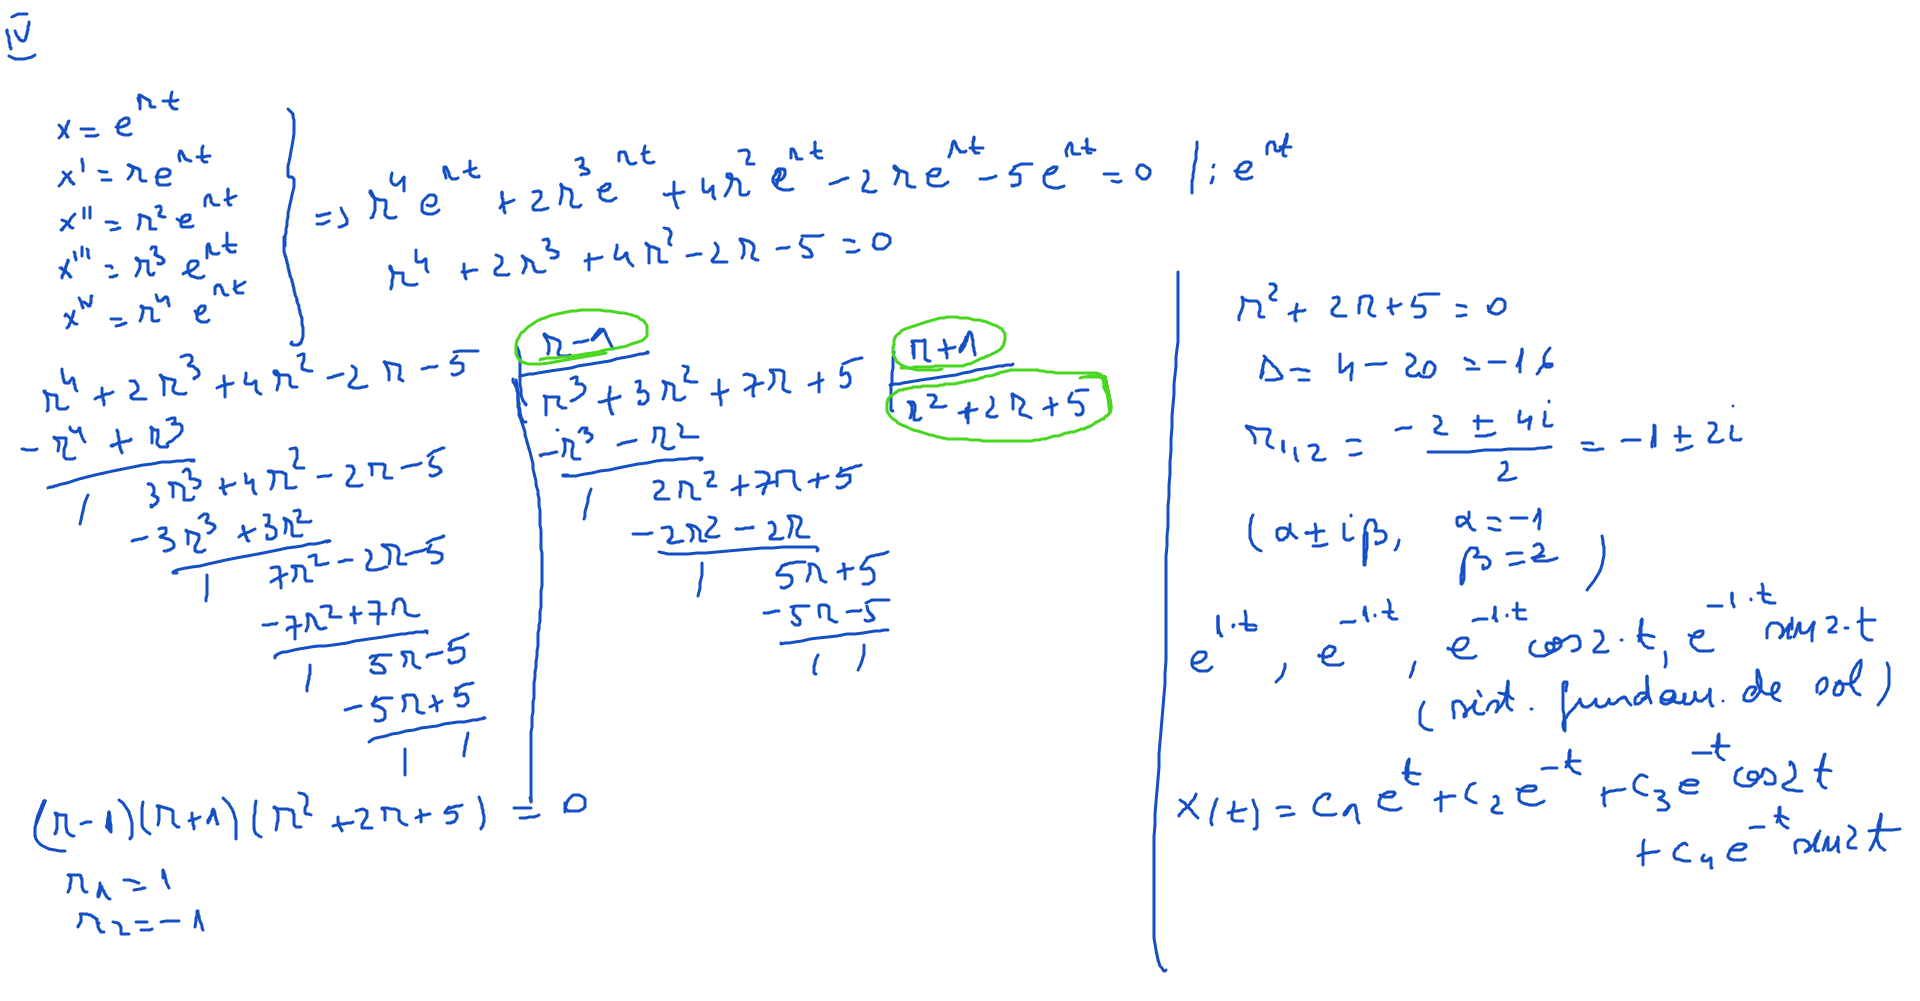 IV
x = e^{rt}
x' = re^{rt}
x'' = r^2 e^{rt}
x''' = r^3 e^{rt}
x^{IV} = r^4 e^{rt}
=> r^4 e^{rt} + 2r^3 e^{rt} + 4r^2 e^{rt} - 2re^{rt} - 5e^{rt} = 0 | : e^{rt}
r^4 + 2r^3 + 4r^2 - 2r - 5 = 0
r^4 + 2r^3 + 4r^2 - 2r - 5 | r-1
-r^4 + r^3
/ 3r^3 + 4r^2 - 2r - 5
-3r^3 + 3r^2
/ 7r^2 - 2r - 5
-7r^2 + 7r
/ 5r - 5
-5r + 5
/ /
r^3 + 3r^2 + 7r + 5 | r+1
-r^3 - r^2
/ 2r^2 + 7r + 5
-2r^2 - 2r
/ 5r + 5
-5r - 5
/ /
r^2 + 2r + 5
(r-1)(r+1)(r^2 + 2r + 5) = 0
r_1 = 1
r_2 = -1
r^2 + 2r + 5 = 0
Δ = 4 - 20 = -16
r_{1,2} = \frac{-2 ± 4i}{2} = -1 ± 2i
(α ± iβ, α = -1
β = 2 )
e^{1·t}, e^{-1·t}, e^{-1·t} cos 2·t, e^{-1·t} sin 2·t
(sist. fundam. de sol)
x(t) = c_1 e^t + c_2 e^{-t} + c_3 e^{-t} cos 2t
+ c_4 e^{-t} sin 2t